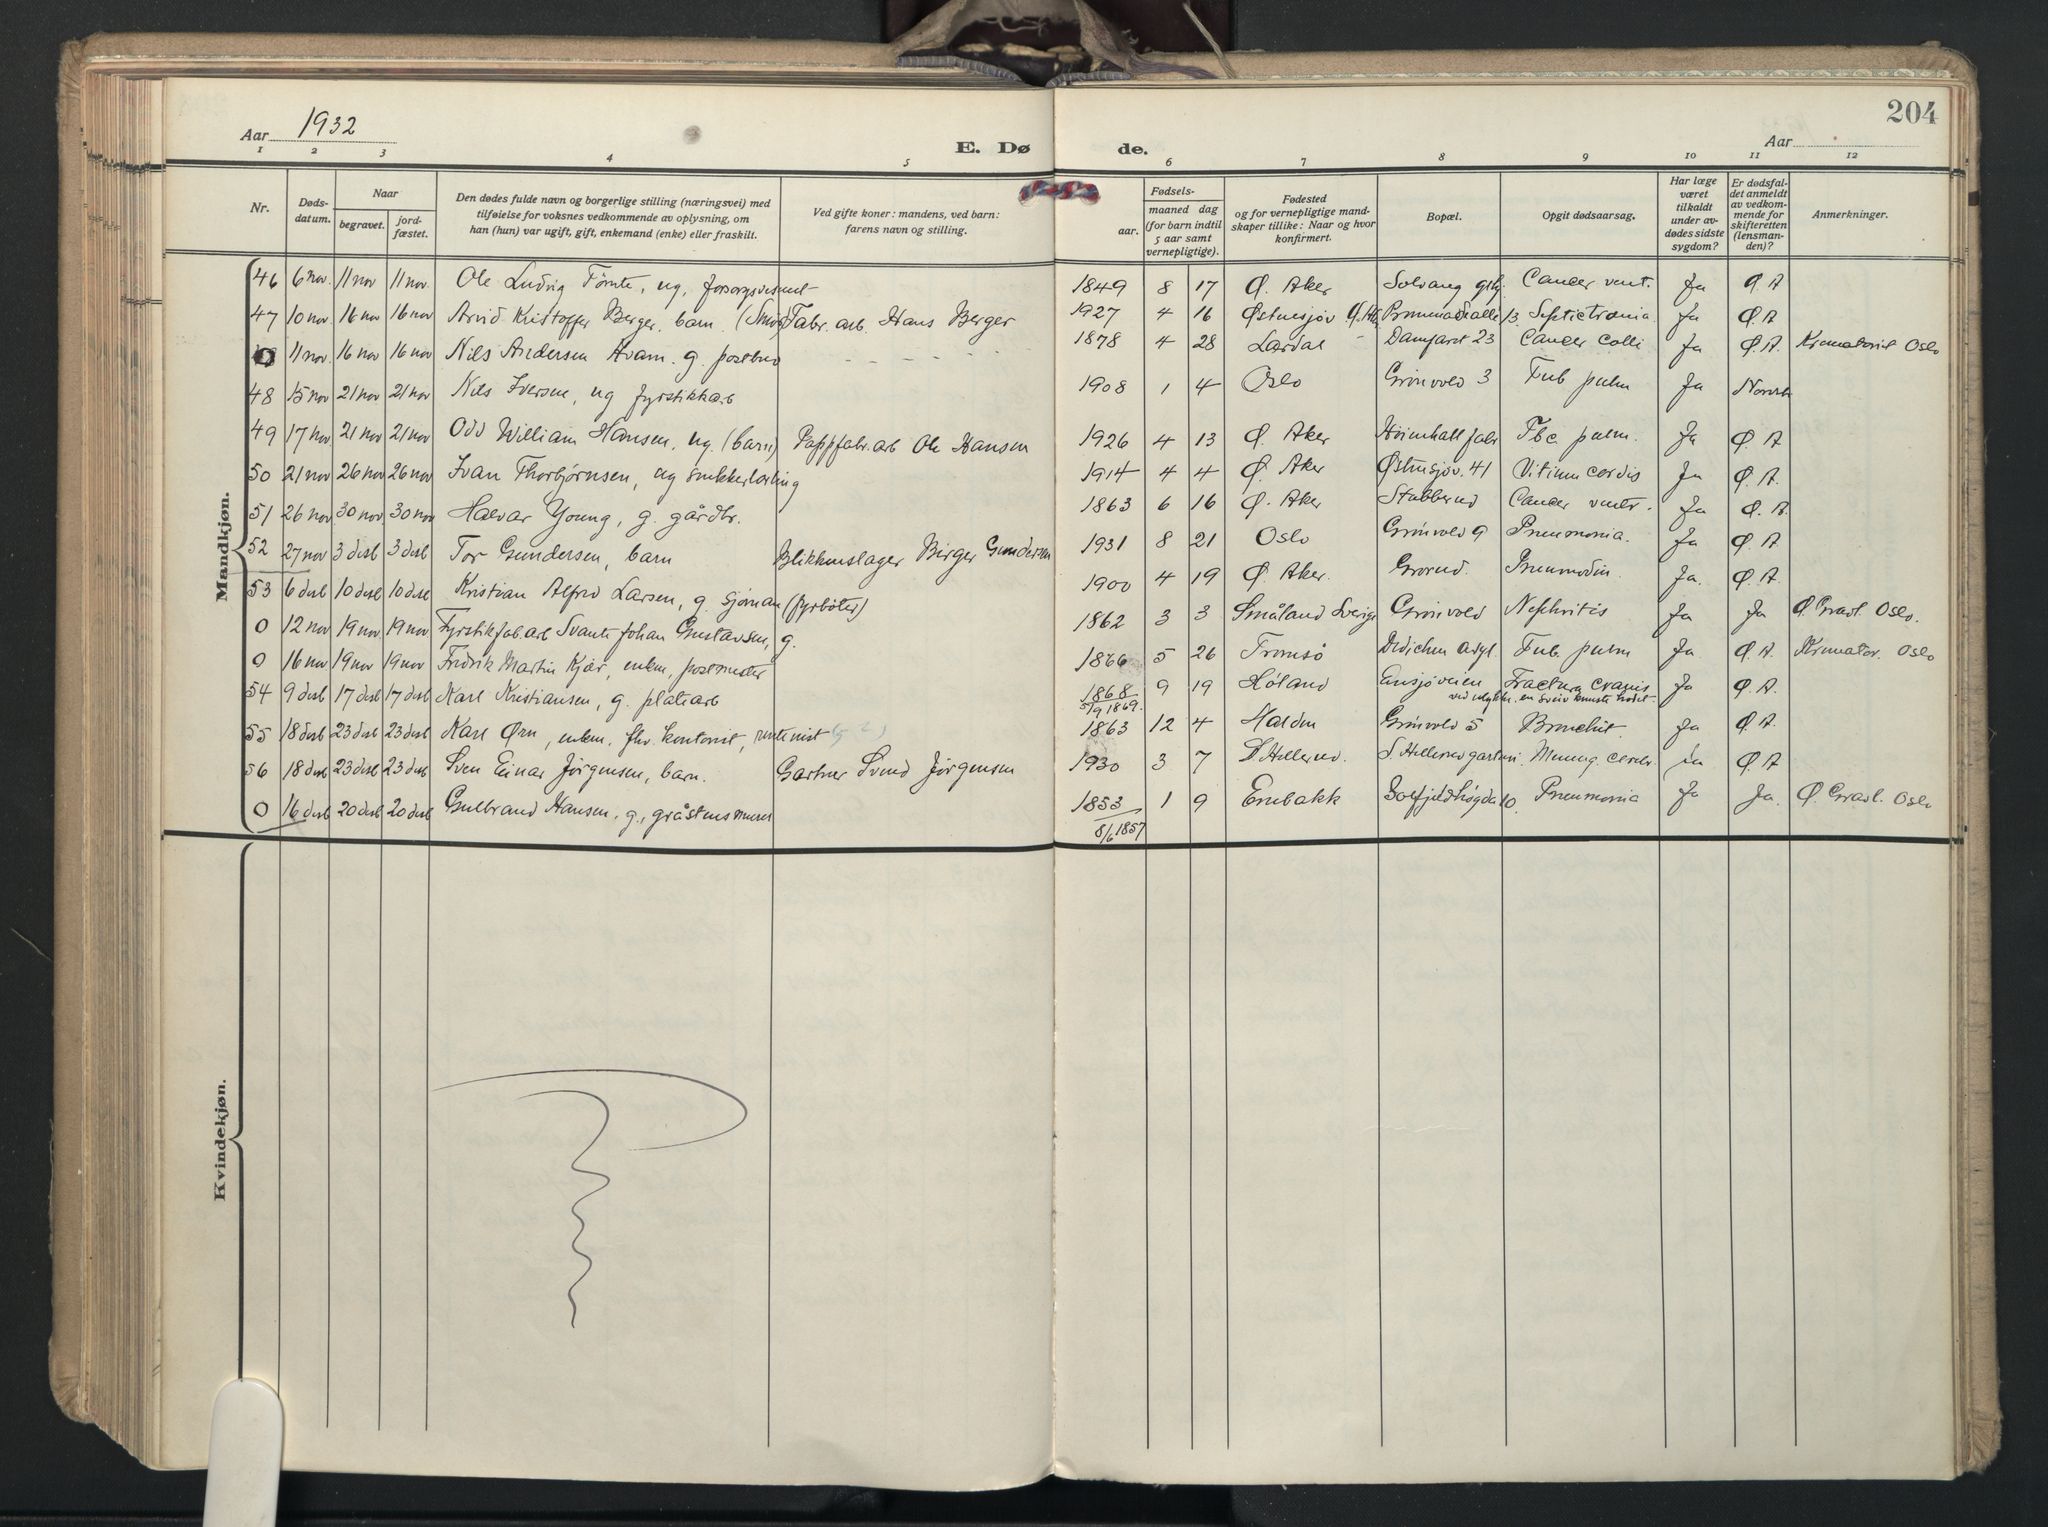 204
Aar 1932
E. Døde.
Aar
1 2 3 4 5 6 7 8 9 10 11 12
Nr.
Døds-datum.
Naar
begravet.
jord-fæstet.
Den dødes fulde navn og borgerlige stilling (næringsvei) med
tilføielse for voksnes vedkommende av oplysning, om
han (hun) var ugift, gift, enkemand (enke) eller fraskilt.
Ved gifte koner: mandens, ved barn:
farens navn og stilling.
Fødsels-
aar.
maaned dag
(for barn indtil
5 aar samt
vernepligtige).
Fødested
og for vernepligtige mand-
skaper tillike: Naar og hvor
konfirmert.
Bopæl.
Opgit dødsaarsag.
Har læge
været
tilkaldt
under av-
dødes sidste
sygdom?
Er dødsfal-
det anmeldt
av vedkom-
mende for
skifteretten
(lensman-
den)?
Anmerkninger.
Mandkjøn.
46 6 nov 11 nov 11 nov. Ole Ludvig Tömte, ug, 1849 8 17 Ø. Aker Solvang Cancer vent. Ja Ø A
47 10 nov. 16 nov 16 nov. Arvid Kristoffer Berger, barn. Fabr. arb. Hans Berger 1927 4 16 Østensjøv. 13. Ja Ø. A
0 11 nov. 16 nov 16 nov Nils Andersen Kvam. g. postbud 1878 4 28 Lardal 23 Cancer colli Ja Ø. A. Krematoriet Oslo
48 15 nov 21 nov 21 nov Nils Iversen, ug fyrstikkarb 1908 1 4 Oslo Grönvold 3 Tub pulm Ja
49 17 nov. 21 nov 21 nov Odd William Hansen, ug. (barn) Pappfabr. arb Ole Hansen 1926 4 13 Ø. Aker Tbc. pulm. Ja Ø. A
50 21 nov 26 nov 26 nov Ivan Thorbjørnsen, ug snekkerlærling 1914 4 4 Ø. Aker Østensjøv. 41 Vitium cordis Ja Ø. A.
51 26 nov 30 nov. 30 nov. Halvar Young, g. gårdbr. 1863 6 16 Ø. Aker Stubberud Cancer ventr. Ja Ø. A.
52 27 nov 3 desb 3 desb Tor Gundersen, barn Blikkenslager Birger Gundersen 1931 8 21 Oslo Grönvold 9 Pneumonia. Ja Ø. A.
53 6 desb 10 desb 10 desb Kristian Alfred Larsen, g. sjøman (fyrbøter) 1900 4 19 Ø. Aker. Grorud. Ja. Ø. A.
0 12 nov 19 nov. 19 nov. Fyrstikfab. arb Svante Johan Gustavsen, g. 1862 3 3 Småland Sverige Grönvold Nephritis Ja Ja Ø Gravl. Oslo.
0 16 nov 19 nov 19 nov Fredrik Martin Kjær, enkem, postmester 1866 5 26 Tromsö Dedichen Tub. pulm Ja Ø. A. Kremator. Oslo
54 9 desb 17 desb 17 desb Karl Kristiansen, g. platearb 1868 5/9 1869. 9 19 Høland Ensjøveien Fractura cranis Ja Ø. A.
55 18 desb 23 desb 23 desb Karl Ørn, enkem. fhv. kontorist, rentenist 1863 12 4 Halden Grönvold 5 Bronchit Ja Ø. A.
56 18 desb 23 desb 23 desb Sven Einar Jørgensen, barn. Gartner Svend Jørgensen 1930 3 7 S. Hellerud. S. Hellerud gartneri. Mening. cerebr. Ja Ø. A
0 16 desb 20 desb 20 desb Gulbrand Hansen, g., gråstensmurer 1853 8/6 1857 1 9 Enebakk Solfjeldhøgda 10. Pneumonia Ja Ja. Ø. Gravl. Oslo
Kvindekjøn.